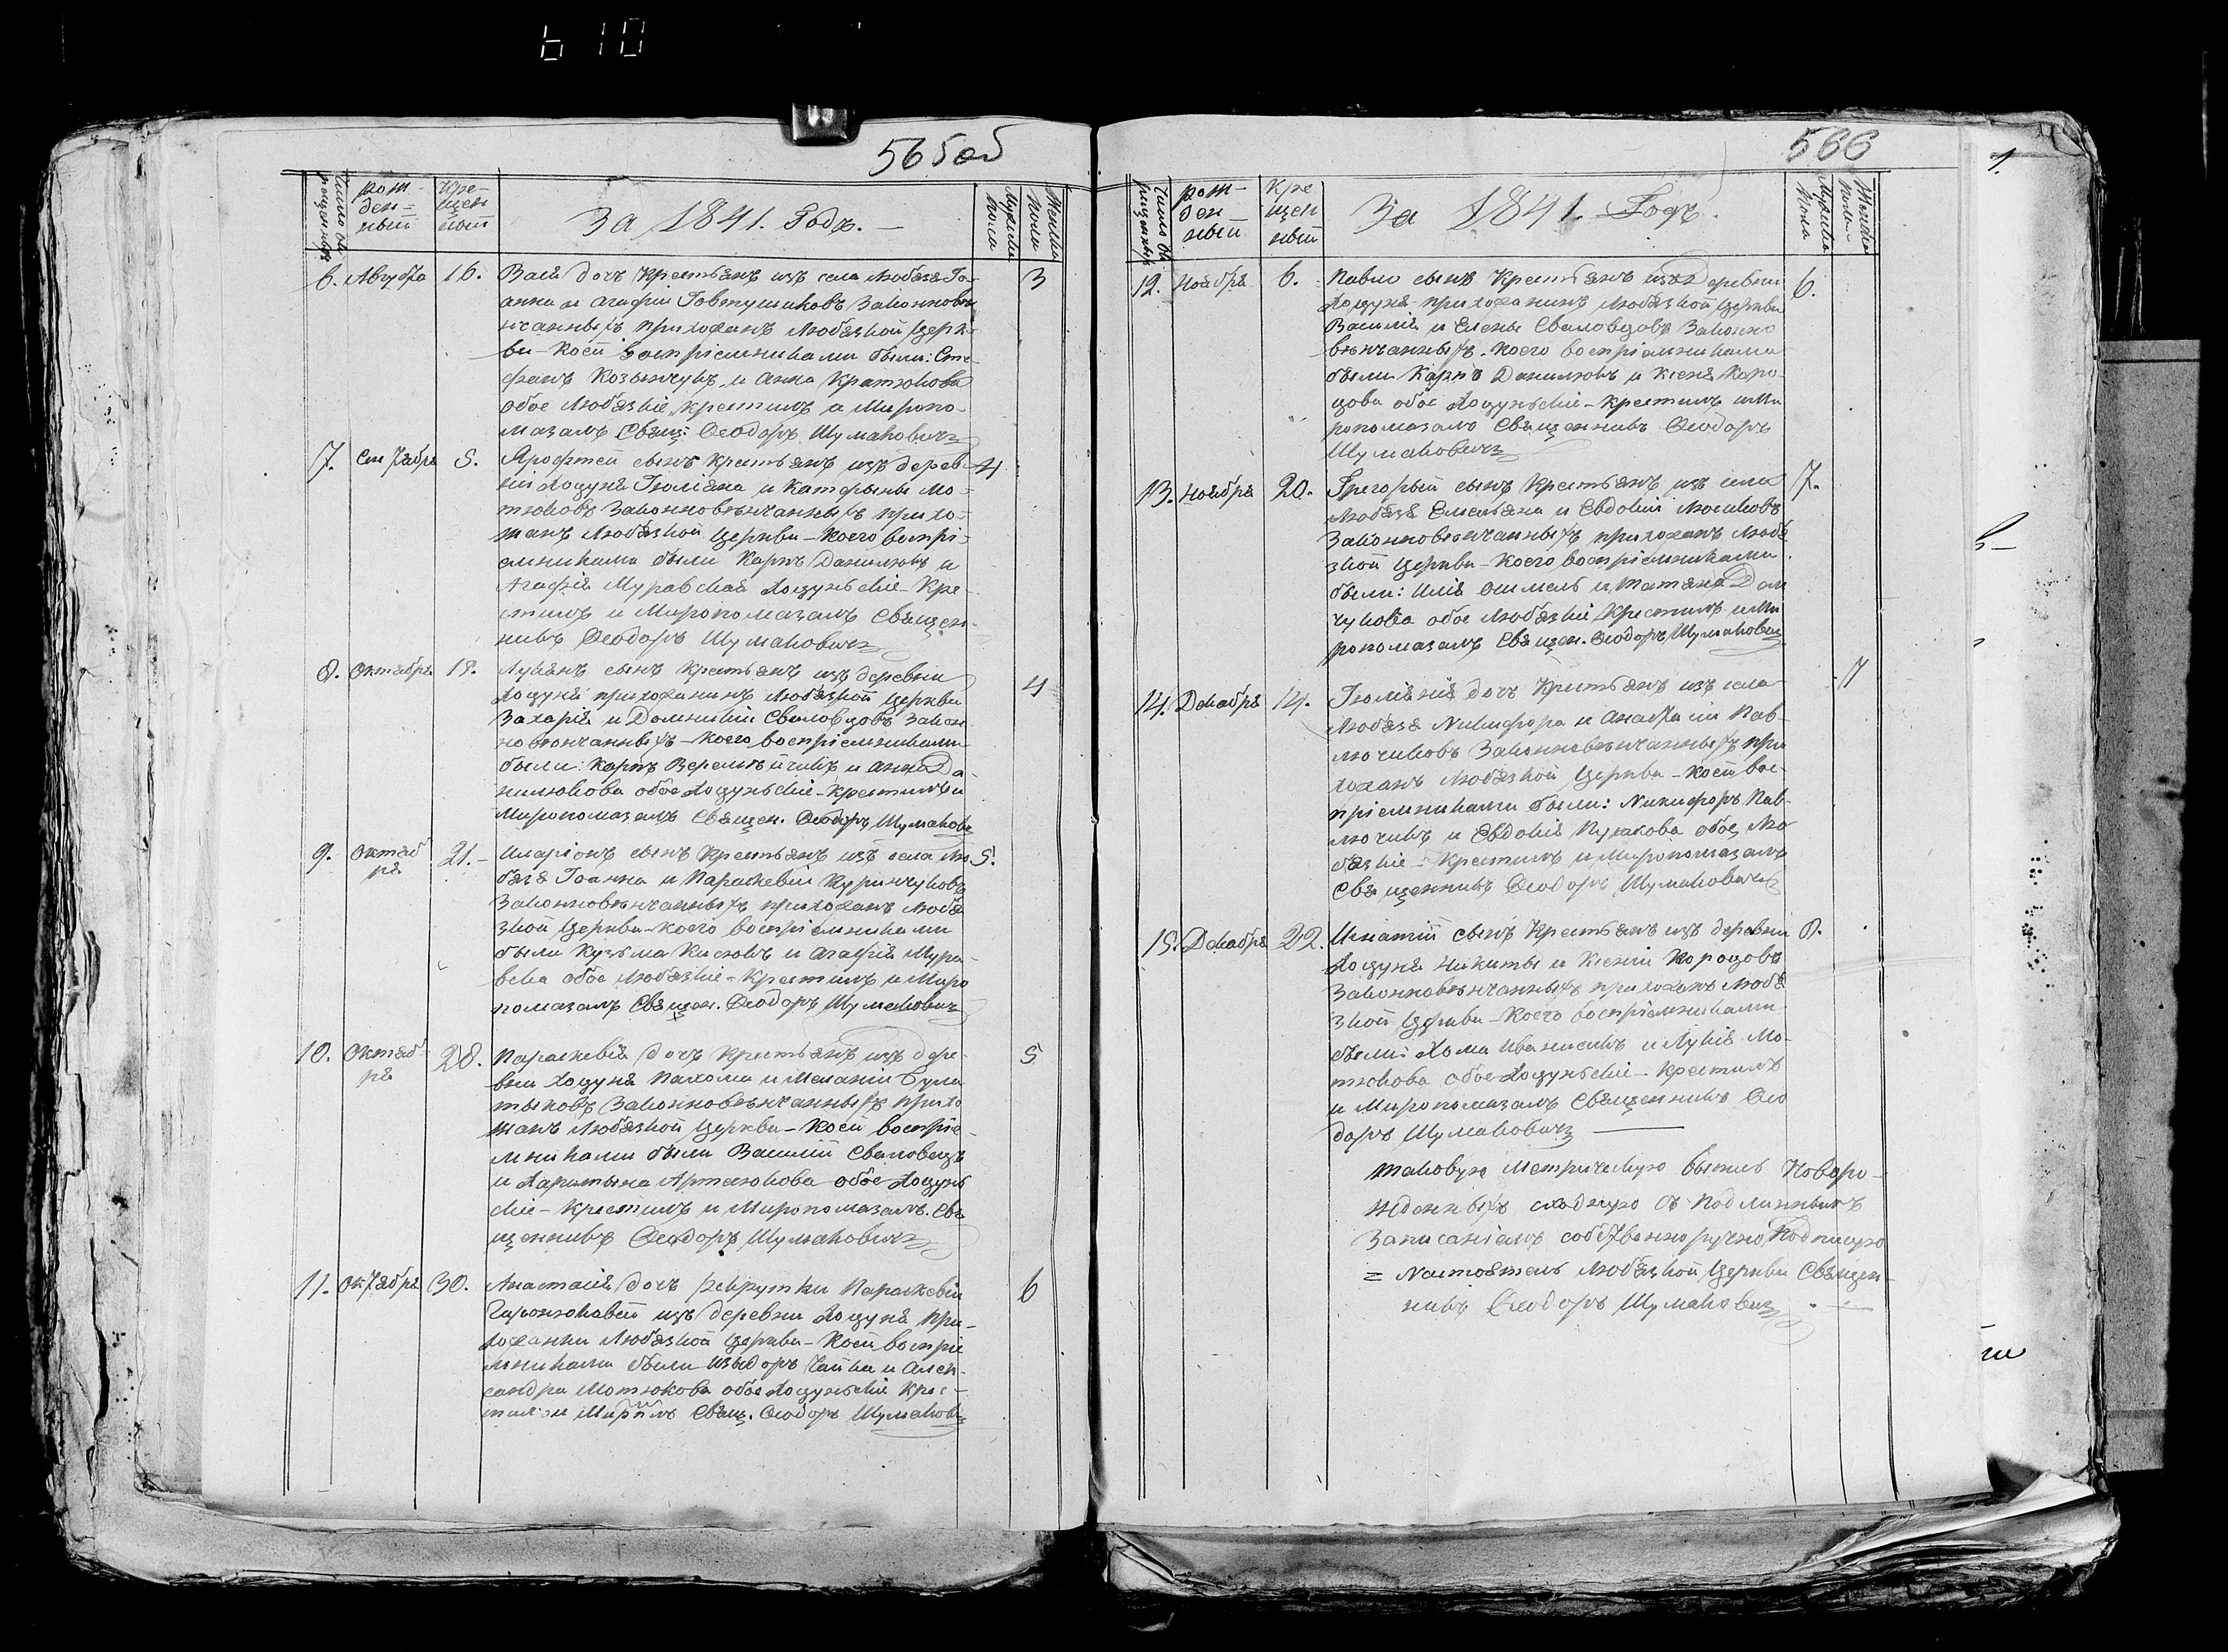 565 об
Число кре
щенныхъ
рож-
ден-
ный
кре-
щен
ной
За 1841. Годъ.
Мужеска
пола
Женска
пола
6. Августа 16. дочь Крестьянъ изъ села Любязя Іо-
анна и Агафіи Говтушиковъ Законновѣн
чанныхъ прихожанъ Любязкой Церк- 3
ви - коей воспріемниками были: Сте-
фанъ Козинчукъ и Анна Кратюкова
обое Любязкіе, крестилъ и Миропо-
мазалъ Свящ: Ѳеодоръ Шумановичъ
7. Сентября 5. сынъ Крестьянъ изъ дерев- 4
ни Лощуня Іюліяна и Катерыны Мо-
тюковъ Законновѣнчанныхъ прихо-
жанъ Любязкой Церкви - коего воспрі-
емниками были Карпъ Данилюкъ и
Агафія Муравская Лощунскіе - Кре-
стилъ и Миропомазалъ Священ-
никъ Ѳеодоръ Шумановичъ
8. Октября 18. Лукянъ сынъ Крестьянъ изъ деревни
Лощуня прихожанинъ Любязкой Церкви 4
Захарія и Домникіи Сваловцовъ Закон-
новѣнчанныхъ - коего воспріемниками
были: Карпъ и Анна Да-
нилюкова обое Лощунскіе - крестилъ и
Миропомазалъ Священ. Ѳеодоръ Шуманович
9. Октяб
ря 21. Иларіонъ сынъ Крестьянъ изъ села Лю 5.
бязя Іоанна и Параскевіи Куринчуковъ
Законновѣнчанныхъ прихожанъ Любя
зкой Церкви - коего воспріемниками
были Кузьма и Агафія Мура-
веска обое Любязкіе - крестилъ и Миро
помазалъ Священ. Ѳеодоръ Шумановичъ
10. Октяб-
ря 28. Параскевія дочь Крестьянъ изъ дере- 5
вни Лощуня Пахома и Меланіи
Законновѣнчанныхъ прихо
жанъ Любязкой Церкви - коей воспріе-
мниками были Василій Сваловецъ
и Харитына Артюхова обое Лощун
скіе - крестилъ и Миропомазалъ. Свя
щенникъ Ѳеодоръ Шумановичъ
11. Октября 30. Анастасія дочь рекрутки Параскевіи 6
изъ деревни Лощуня при-
хожанки Любязкой Церкви - коей воспріе
мниками были Изыдоръ Чайка и Алек-
сандра Мотюкова обое Лощунскіе крес-
тилъ и Свящ. Ѳеодоръ Шуманович
566
Число кре
щенныхъ
рож-
ден
ный
кре
щен
ный
За 1841. Годъ.
Мужеска
пола
Женска
пола
12. Ноября 6. Павло сынъ Крестьянъ изъ Деревни 6.
Лощуня прихожанинъ Любязкой Церкви
Василія и Елены Сваловцовъ Законно
вѣнчанныхъ - коего воспріемниками
были Карпъ Данилюкъ и Ксенія Коро-
цова обое Лощунскіе - крестилъ и Ми
ропомазалъ Священникъ Ѳеодоръ
Шумановичъ
13. Ноября 20. Грегорый сынъ Крестьянъ изъ села 7.
Любязя Емельяна и Евдокіи
Законновѣнчанныхъ прихожанъ Любя
зкой Церкви - коего воспріемниками
были: Илія и Татяна
обое Любязкіе Крестилъ и Ми
ропомазалъ Священ. Ѳеодоръ Шумановичъ
14. Декабря 14. Іюліянія дочь Крестьянъ изъ села 7
Любязя Никифора и Анастасіи Пав-
лючиковъ Законновѣнчанныхъ при
хожанъ Любязкой Церкви - коей вос-
пріемниками были: Никифоръ Пав-
лючикъ и Евдокія обое Лю
бязкіе - Крестилъ и Миропомазалъ
Священникъ Ѳеодоръ Шумановичъ
15. Декабря 22. Игнатій сынъ Крестьянъ изъ деревни 8.
Лощуня Никиты и Ксеніи Короцовъ
Законновѣнчанныхъ прихожанъ Любя
зкой Церкви - коего воспріемниками
были: Хома и Лукія Мо-
тюкова обое Лощунскіе - Крестилъ
и Миропомазалъ Священникъ Ѳео
доръ Шумановичъ
Таковую Метрическую выпись Новоро-
жденныхъ сходную съ подлиннымъ
Записаніемъ собственноручно Подписую
= Настоятель Любязкой Церкви Священ-
никъ Ѳеодоръ Шумановичъ